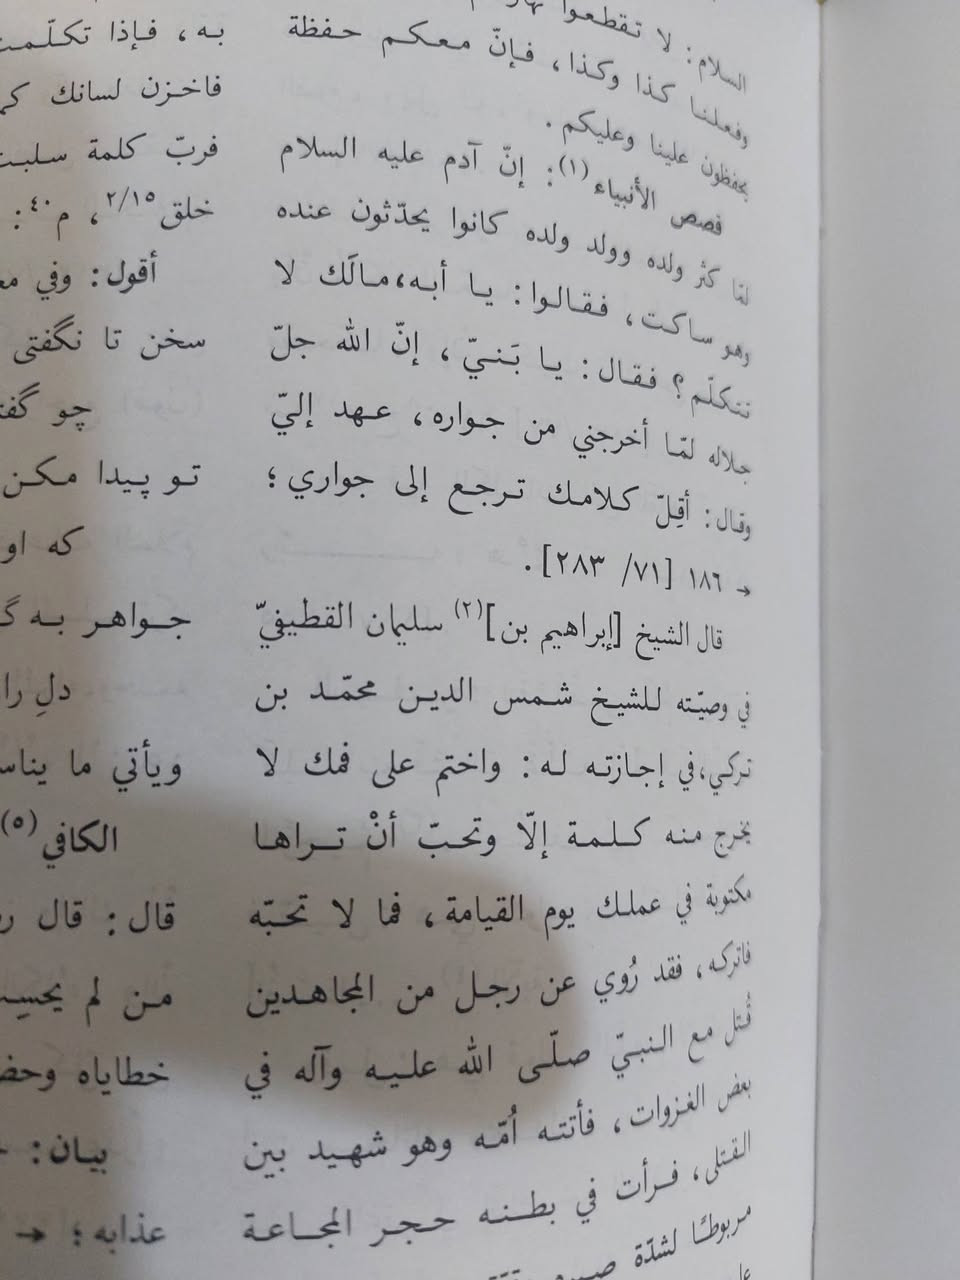 السلام: لا تقطعوا
وفعلنا كذا وكذا، فإنّ معكم حفظة
يحفظون علينا وعليكم.
قصص الأنبياء(١): إنّ آدم عليه السلام
لمّا كثر ولده وولد ولده كانوا يحدّثون عنده
وهو ساكت، فقالوا: يا أبه، مالَك لا
تتكلّم؟ فقال: يا بَنيّ، إنّ الله جلّ
جلاله لمّا أخرجني من جواره، عهد إليّ
وقال: أقِلّ كلامك ترجع إلى جواري؛
→ ١٨٦ [٧١/ ٢٨٣].
قال الشيخ [إبراهيم بن](٢) سليمان القطيفيّ
في وصيّته للشيخ شمس الدين محمّد بن
تركي، في إجازته له: واختم على فمك لا
يخرج منه كلمة إلّا وتحبّ أنْ تراها
مكتوبة في عملك يوم القيامة، فما لا تحبّه
فاتركه، فقد رُوي عن رجل من المجاهدين
قُتل مع النبيّ صلّى الله عليه وآله في
بعض الغزوات، فأتته اُمّه وهو شهيد بين
القتلى، فرأت في بطنه حجر المجاعة
مربوطًا لشدّة
به، فإذا تكلّمت
فاخزن لسانك
فربّ كلمة سلبت
خلق ٢/١٥، م٤٠:
أقول: وفي
سخن تا نگفتی
چو
تو پیدا مکن
که او
جواهر به
دلِ را
ويأتي ما
الكافي(٥)
قال: قال
من لم
خطاياه
بيان:
عذابه؛ →